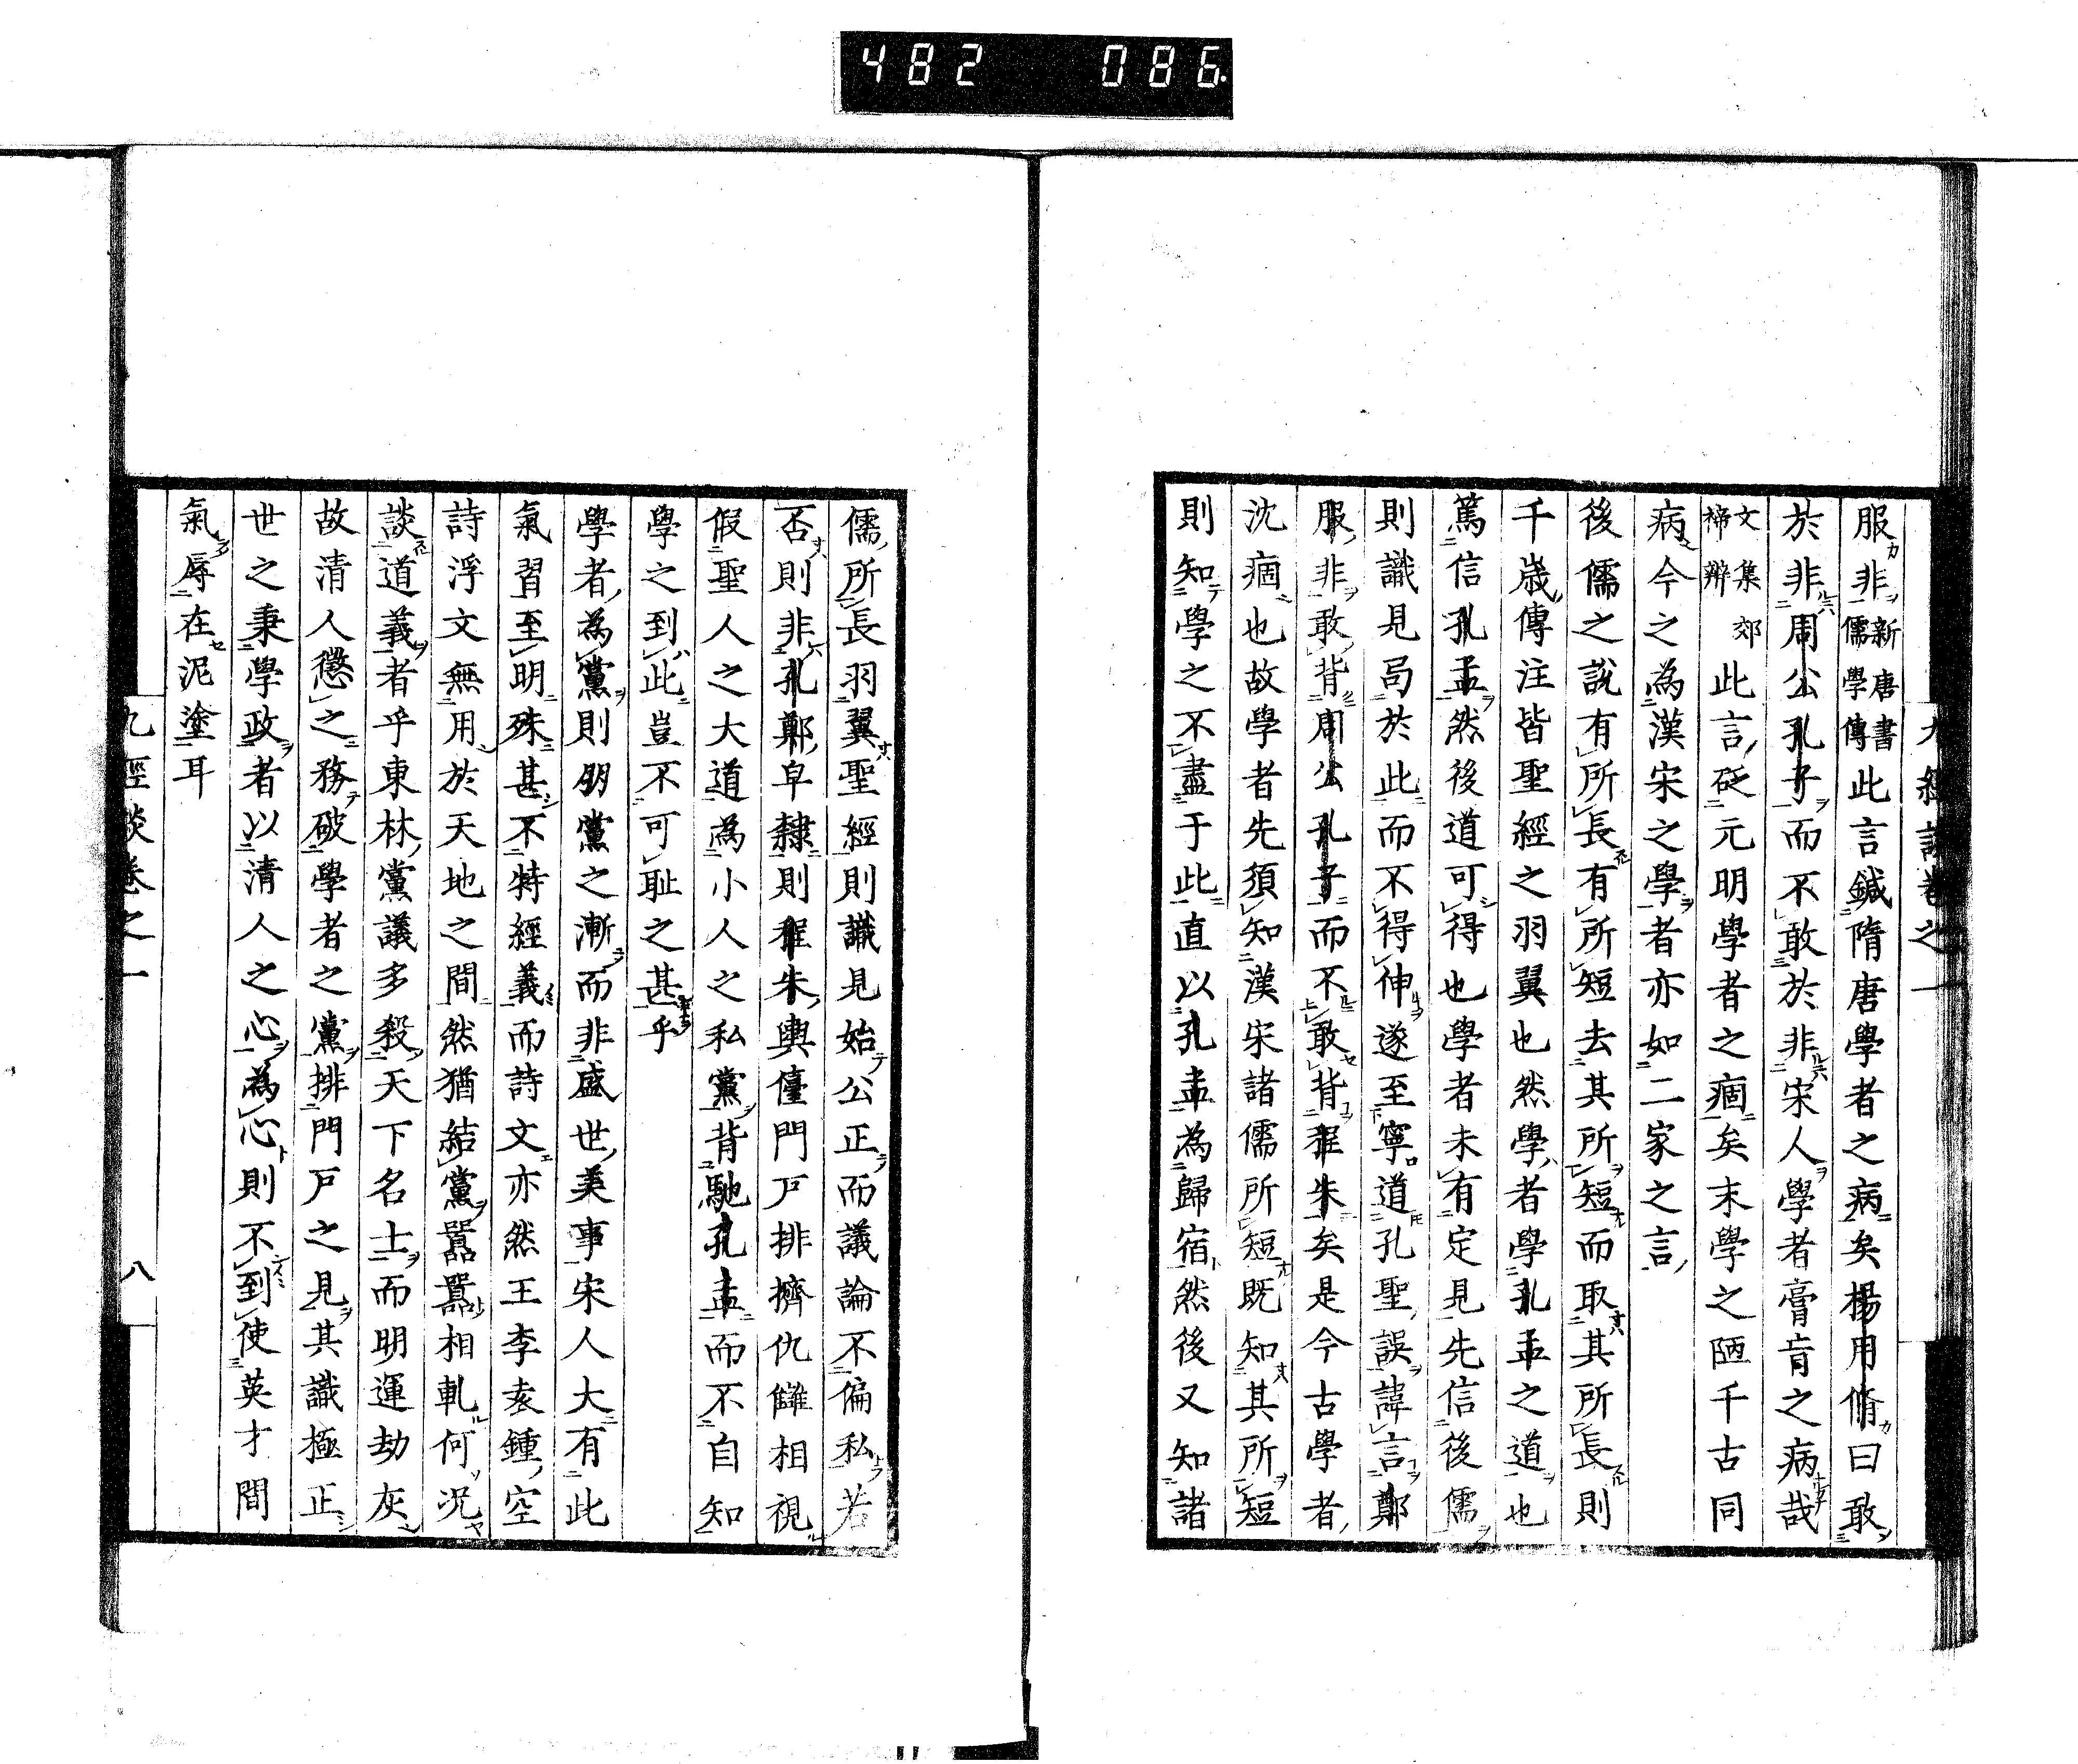 482 086
九經談卷之一
服非新唐書儒學傳此言鍼隋唐學者之病矣楊用脩曰敢
於非周公孔子而不敢於非宋人學者膏肓之病哉
文集郊禘辨此言砭元明學者之痼矣末學之陋千古同
病今之為漢宋之學者亦如二家之言
後儒之說有所長有所短去其所短而取其所長則
千歲傳注皆聖經之羽翼也然學者學孔孟之道也
篤信孔孟然後道可得也學者未有定見先信後儒
則識見局於此而不得伸遂至寧道孔聖誤諱言鄭
服非敢背周公孔子而不敢背程朱矣是今古學者
沈痼也故學者先須知漢宋諸儒所短既知其所短
則知學之不盡于此直以孔孟為歸宿然後又知諸
儒所長羽翼聖經則識見始公正而議論不偏私若
否則非孔鄭皁隸則程朱輿儓門戶排擠仇讎相視
假聖人之大道為小人之私黨背馳孔孟而不自知
學之到此豈不可耻之甚乎
學者為黨則朋黨之漸而非盛世美事宋人大有此
氣習至明殊甚不特經義而詩文亦然王李袁鍾空
詩浮文無用於天地之間然猶結黨囂囂相軋何況
談道義者乎東林黨議多殺天下名士而明運劫灰
故清人懲之務破學者之黨排門戶之見其識極正
世之秉學政者以清人之心為心則不到使英才間
氣辱在泥塗耳
九經談卷之一
八